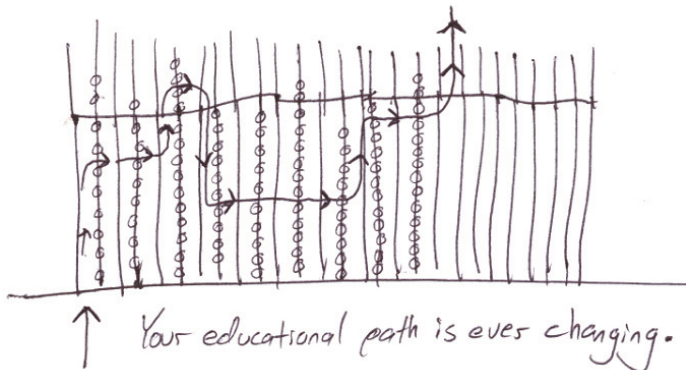 Your educational path is ever changing.